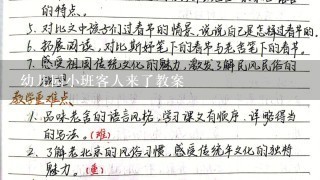 的特点。
5、对比文中孩子们过春节的情景,说说自己是怎样过春节的。
6、拓展阅读,对比斯妤笔下的春节与老舍笔下的春节。
7、感受祖国传统文化的魅力,激发了解民风民俗的
幼儿园小班客人来了教案
教学重难点
1、品味老舍的语言风格,学习课文有顺序、详略得当
的写法。(难)
2、了解老北京的风俗习惯,感受传统年文化的独特
魅力。(重)